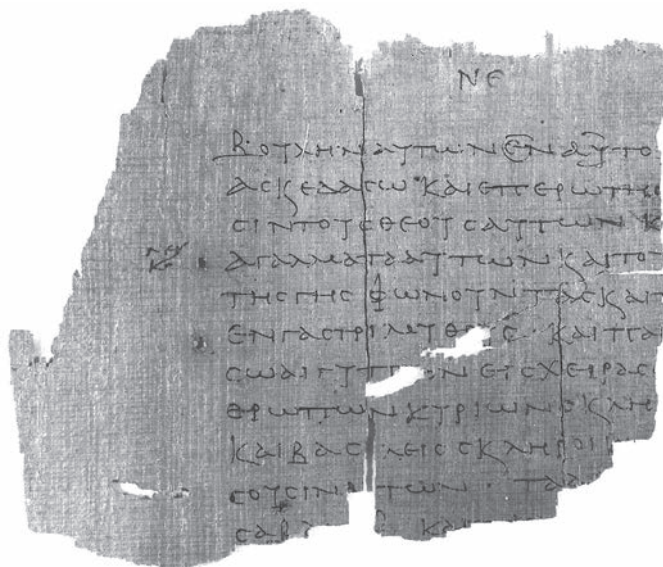 ΝΕ
ΒΟΥΛΗΝΑΥΤΩΝΕΝΑΥΤΟ
ΑCΚΕΔΑCΩΚΑΙΕΠΕΡΩΤΗ
CΙΝΤΟΥCΘΕΟΥCΑΥΤΩΝΚ
ΑΓΑΛΜΑΤΑΑΥΤΩΝΚΑΙΤΟ
ΤΗCΓΗCΦΩΝΟΥΝΤΑCΚΑΙΤ
ΕΝΓΑCΤΡΙΜΥΘ C·ΚΑΙΠΑ
CΩΑΙΓΥΠΤ ΟΝΕΙCΧΕΙΡΑC
ΘΡΩΠΩΝΚΥΡΙΩΝCΚΛΗ
ΚΑΙΒΑCΙΛΕΙCCΚΛΗΡΟΙ
CΟΥCΙΝΑ ΤΩΝ· ΤΑ
CΑΒ ΚΑΙ